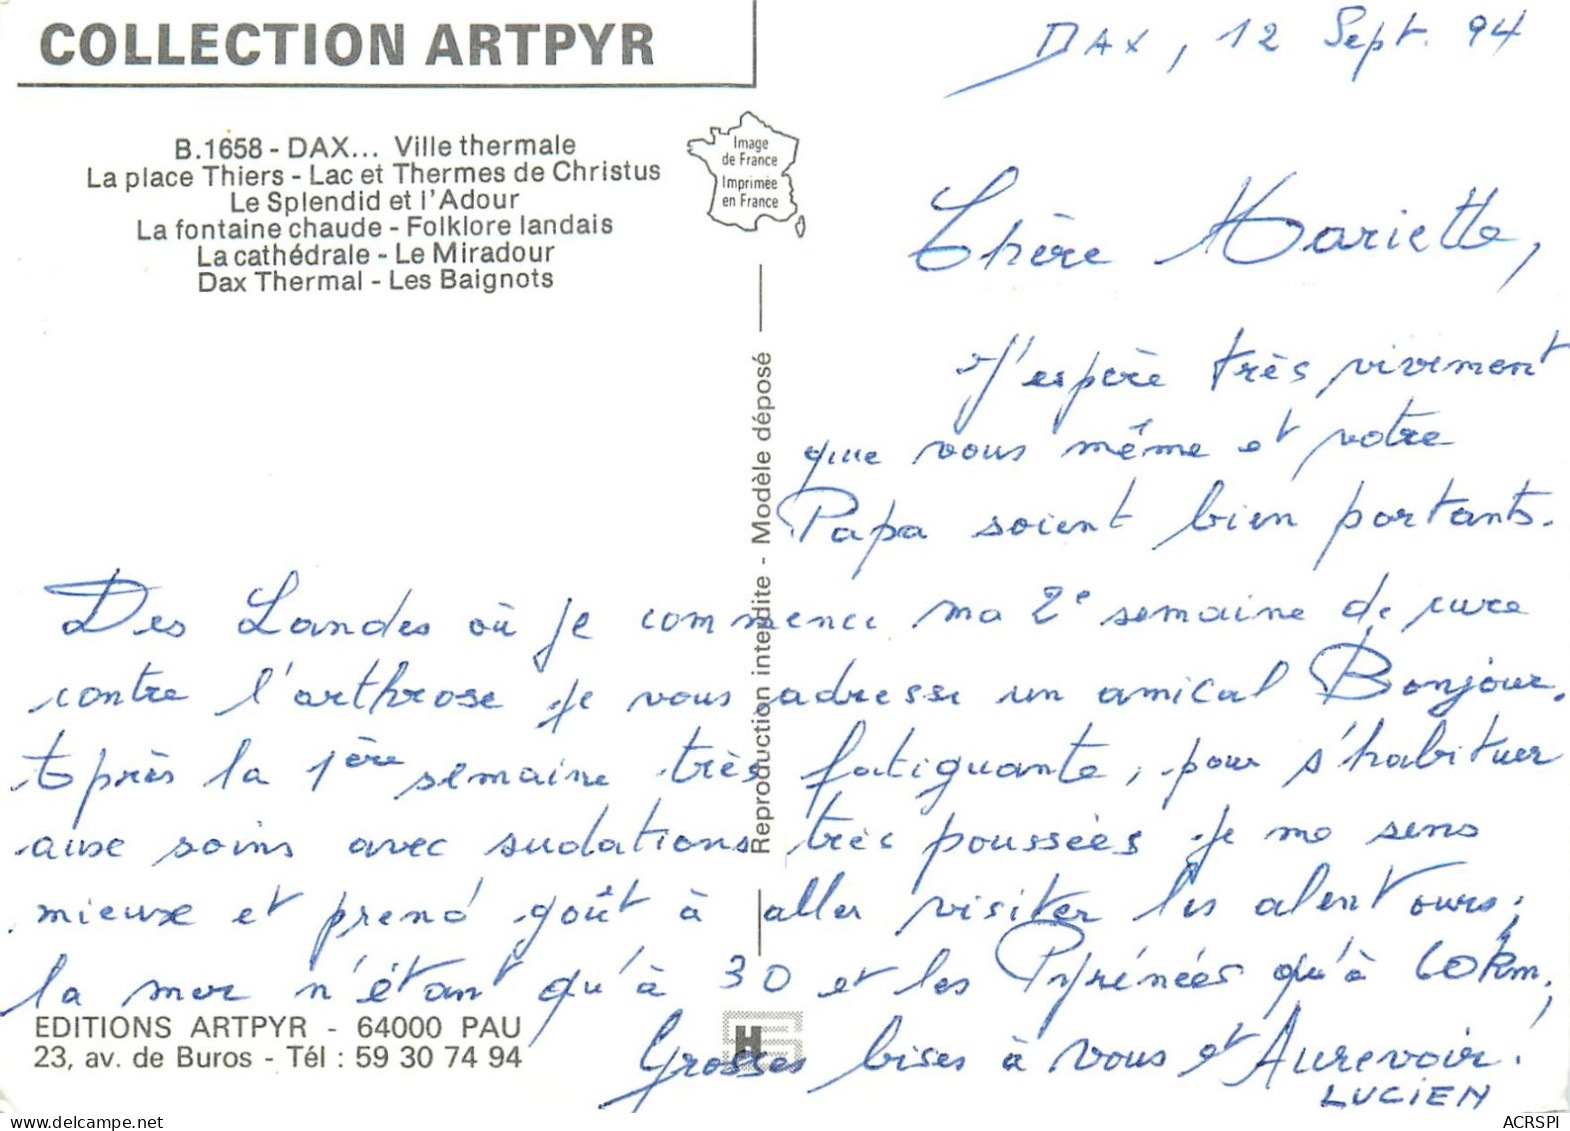 COLLECTION ARTPYR
B.1658 - DAX... Ville thermale
La place Thiers - Lac et Thermes de Christus
Le Splendid et l'Adour
La fontaine chaude - Folklore landais
La cathédrale - Le Miradour
Dax Thermal - Les Baignots
Image
de France
Imprimée
en France
Reproduction interdite - Modèle déposé
DAX, 12 Sept. 94
Chère Mariette,
J'espère très vivement
que vous même et votre
Papa soient bien portants.
Des Landes où je commence ma 2e semaine de cure
contre l'arthrose je vous adresse un amical Bonjour.
Après la 1ère semaine très fatiguante, pour s'habituer
aux soins avec sudations très poussées je me sens
mieux et prend goût à aller visiter les alentours;
la mer n'étant qu'à 30 et les Pyrénées qu'à 60km;
Grosses bises à vous et Aurevoir!
LUCIEN
EDITIONS ARTPYR - 64000 PAU
23, av. de Buros - Tél : 59 30 74 94
ACRSPI